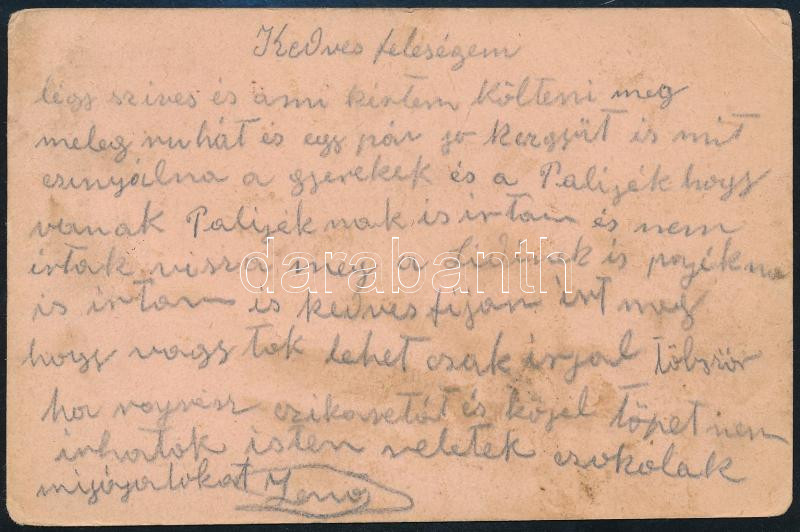 Kedves feleségem
légy szives és ami kértem költeni meg
meleg ruhát és egy pár jo kezgyüt is mit
csinyálna a gyerekek és a Palijék hogy
vanak Palijék nak is irtam és nem
irtak visza meg a is
is irtam is kedves fijam irt meg
hogy vagy tok lehet csak irjal töbször
ha és köjel töpet nem
irhatok isten veletek csokolak
Jenő
darabanth